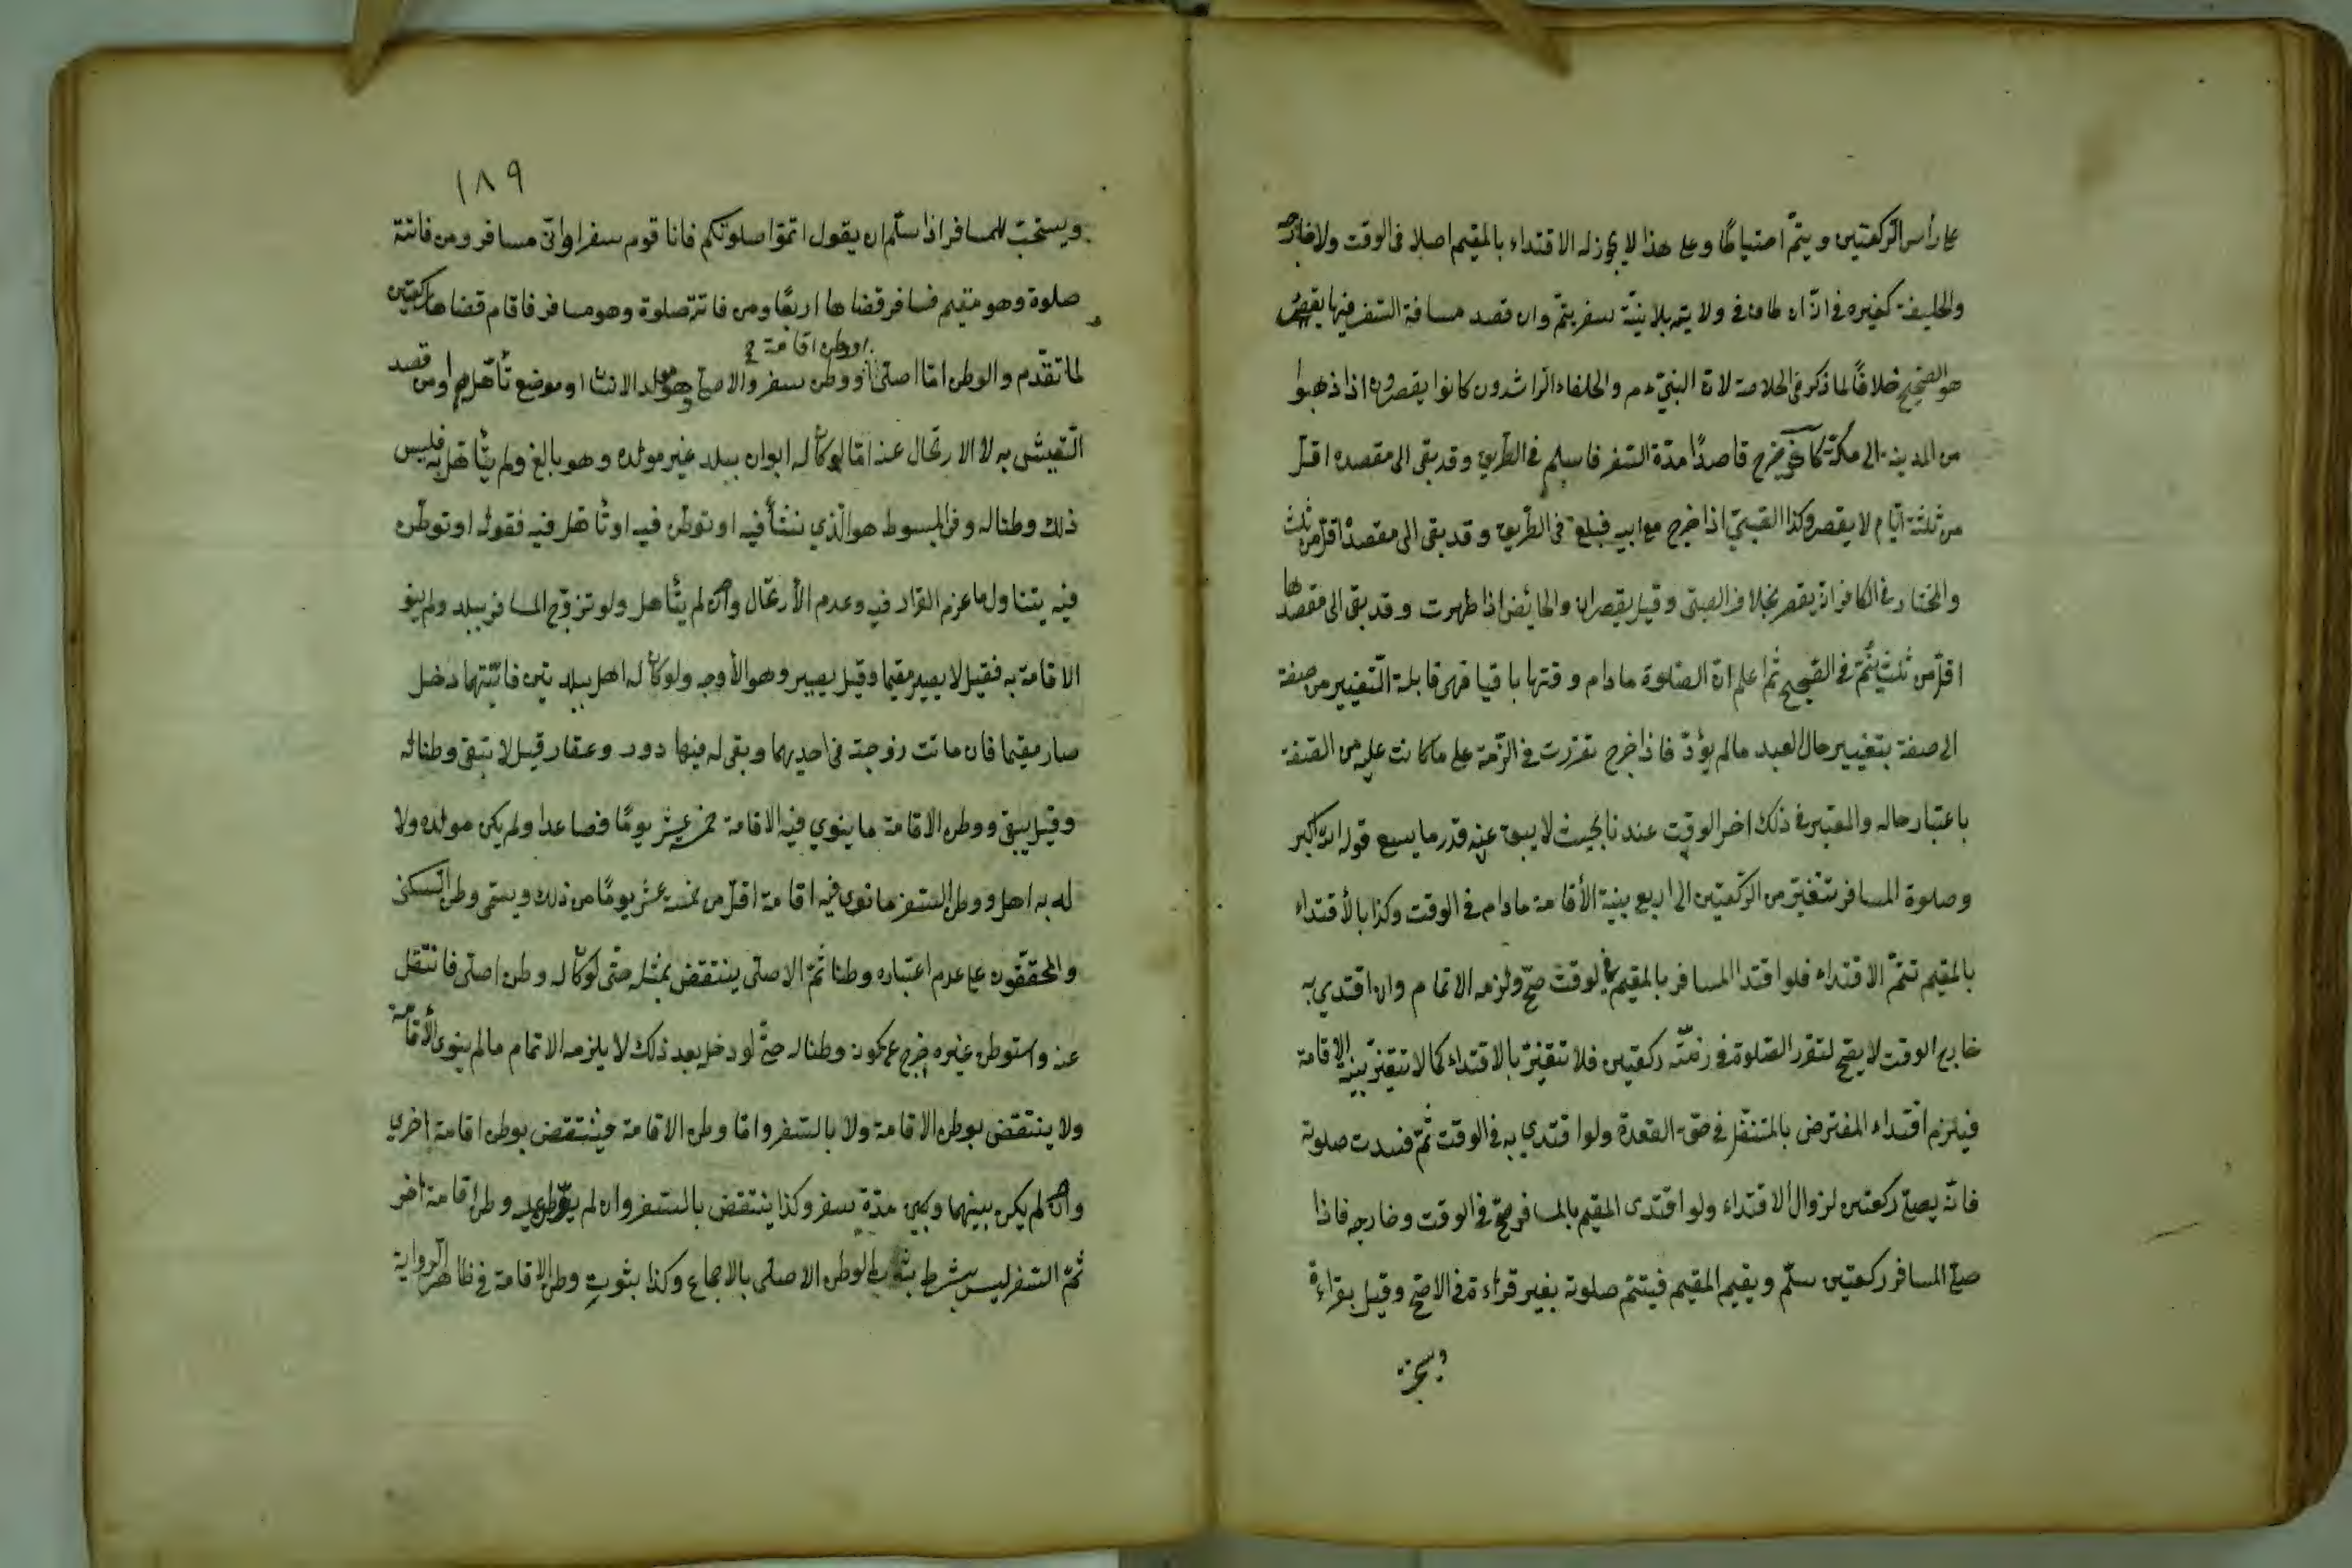 على رأس الركعتين ويتم احتياطا وعلى هذا لا يجوز له الاقتداء بالمقيم اصلا فى الوقت ولا خارجه
والخليفة كغيره فى انه ان طاف فى ولايته بلا نية سفر يتم وان قصد مسافة السفر فيها يقصر
هو الصحيح خلافًا لما ذكر فى الخلاصة لان النبى عم والخلفاء الراشدون كانوا يقصرون اذا ذهبوا
من المدينة الى مكة كافر خرج قاصدًا مدة السفر فاسلم فى الطريق وقد بقى الى مقصده اقل
من ثلثة ايام لا يقصر وكذا الصبى اذا خرج مع ابيه فبلغ فى الطريق وقد بقى الى مقصده اقل من ثلث
والمختار فى الكافر انه يقصر بخلاف الصبى وقيل يقصران والحائض اذا طهرت وقد بقى الى مقصدها
اقل من ثلث يتم فى الصحيح ثم اعلم ان الصلوة مادام وقتها باقيا فهى قابلة التغيير من صفة
الى صفة بتغيير حال العبد مالم يؤد فاذا خرج تقررت فى الذمة على ما كانت عليه من الصفة
باعتبار حاله والمعتبر فى ذلك اخر الوقت عندنا بحيث لا يبقى عنه قدر ما يسع قوله الله اكبر
وصلوة المسافر تتغير من الركعتين الى اربع بنية الأقامة مادام فى الوقت وكذا بالأقتداء
بالمقيم تتم الاقتداء فلو اقتدا المسافر بالمقيم فى الوقت صح ولزمه الاتمام وان اقتدي به
خارج الوقت لا يصح لتقرر الصلوة فى ذمته ركعتين فلا تتغير بالاقتداء كما لا تتغير بنية الاقامة
فيلزم اقتداء المفترض بالمتنفل فى حق القعدة ولو اقتدي به فى الوقت ثم فسدت صلوته
فانه يصلى ركعتين لزوال الاقتداء ولو اقتدى المقيم بالمسافر صح فى الوقت وخارجه فاذا
صلى المسافر ركعتين سلم ويقيم المقيم فيتم صلوته بغير قراءة فى الاصح وقيل بقراءة
ويستحب
١٨٩
ويستحب للمسافر اذا سلم ان يقول اتموا صلوتكم فانا قوم سفر او انى مسافر ومن فاتته
صلوة وهو مقيم فسافر قضاها اربعًا ومن فاتته صلوة وهو مسافر فاقام قضاها ركعتين
او وطن اقامة
لما تقدم والوطن اما اصلى او وطن سفر والاصلى هو مولد الانسان او موضع تأهل به او من قصد
التعيش به لا الارتحال عنه اما لو كان له ابوان ببلد غير مولده وهو بالغ ولم يتأهل به فليس
ذلك وطنا له وفى المبسوط هو الذي نشأ فيه او توطن فيه او تأهل فيه فقوله او توطن
فيه يتناول ما عزم القرار فيه وعدم الأرتحال وان لم يتأهل ولو تزوج المسافر ببلد ولم ينو
الاقامة به فقيل لا يصير مقيما وقيل يصير وهو الأوجه ولو كان له اهل ببلدتين فايتهما دخل
صار مقيما فان ماتت زوجته فى احديهما وبقى له فيها دور وعقار قيل لا تبقى وطنا له
وقيل يبقى ووطن الاقامة ما ينوي فيه الاقامة خمسة عشر يومًا فصاعدا ولم يكن مولده ولا
له به اهل ووطن السفر ما نوى فيه اقامة اقل من خمسة عشر يومًا من ذلك ويسمى وطن السكنى
والمحققون على عدم اعتباره وطنا ثم الاصلى ينتقض بمثله حتى لو كان له وطن اصلى فانتقل
عنه واستوطن غيره خرج عن كون وطنا له حتى لو دخل بعد ذلك لا يلزمه الاتمام مالم ينوى الأقامة
ولا ينتقض بوطن الاقامة ولا بالسفر واما وطن الاقامة فينتقض بوطن اقامة اخرى
وان لم يكن بينهما وبين مدة سفر وكذا ينتقض بالسفر وان لم وطن اقامة اخر
ثم السفر ليس بشرط الوطن الاصلى بالاجماع وكذا بثوت وطن الاقامة فى ظاهر الرواية